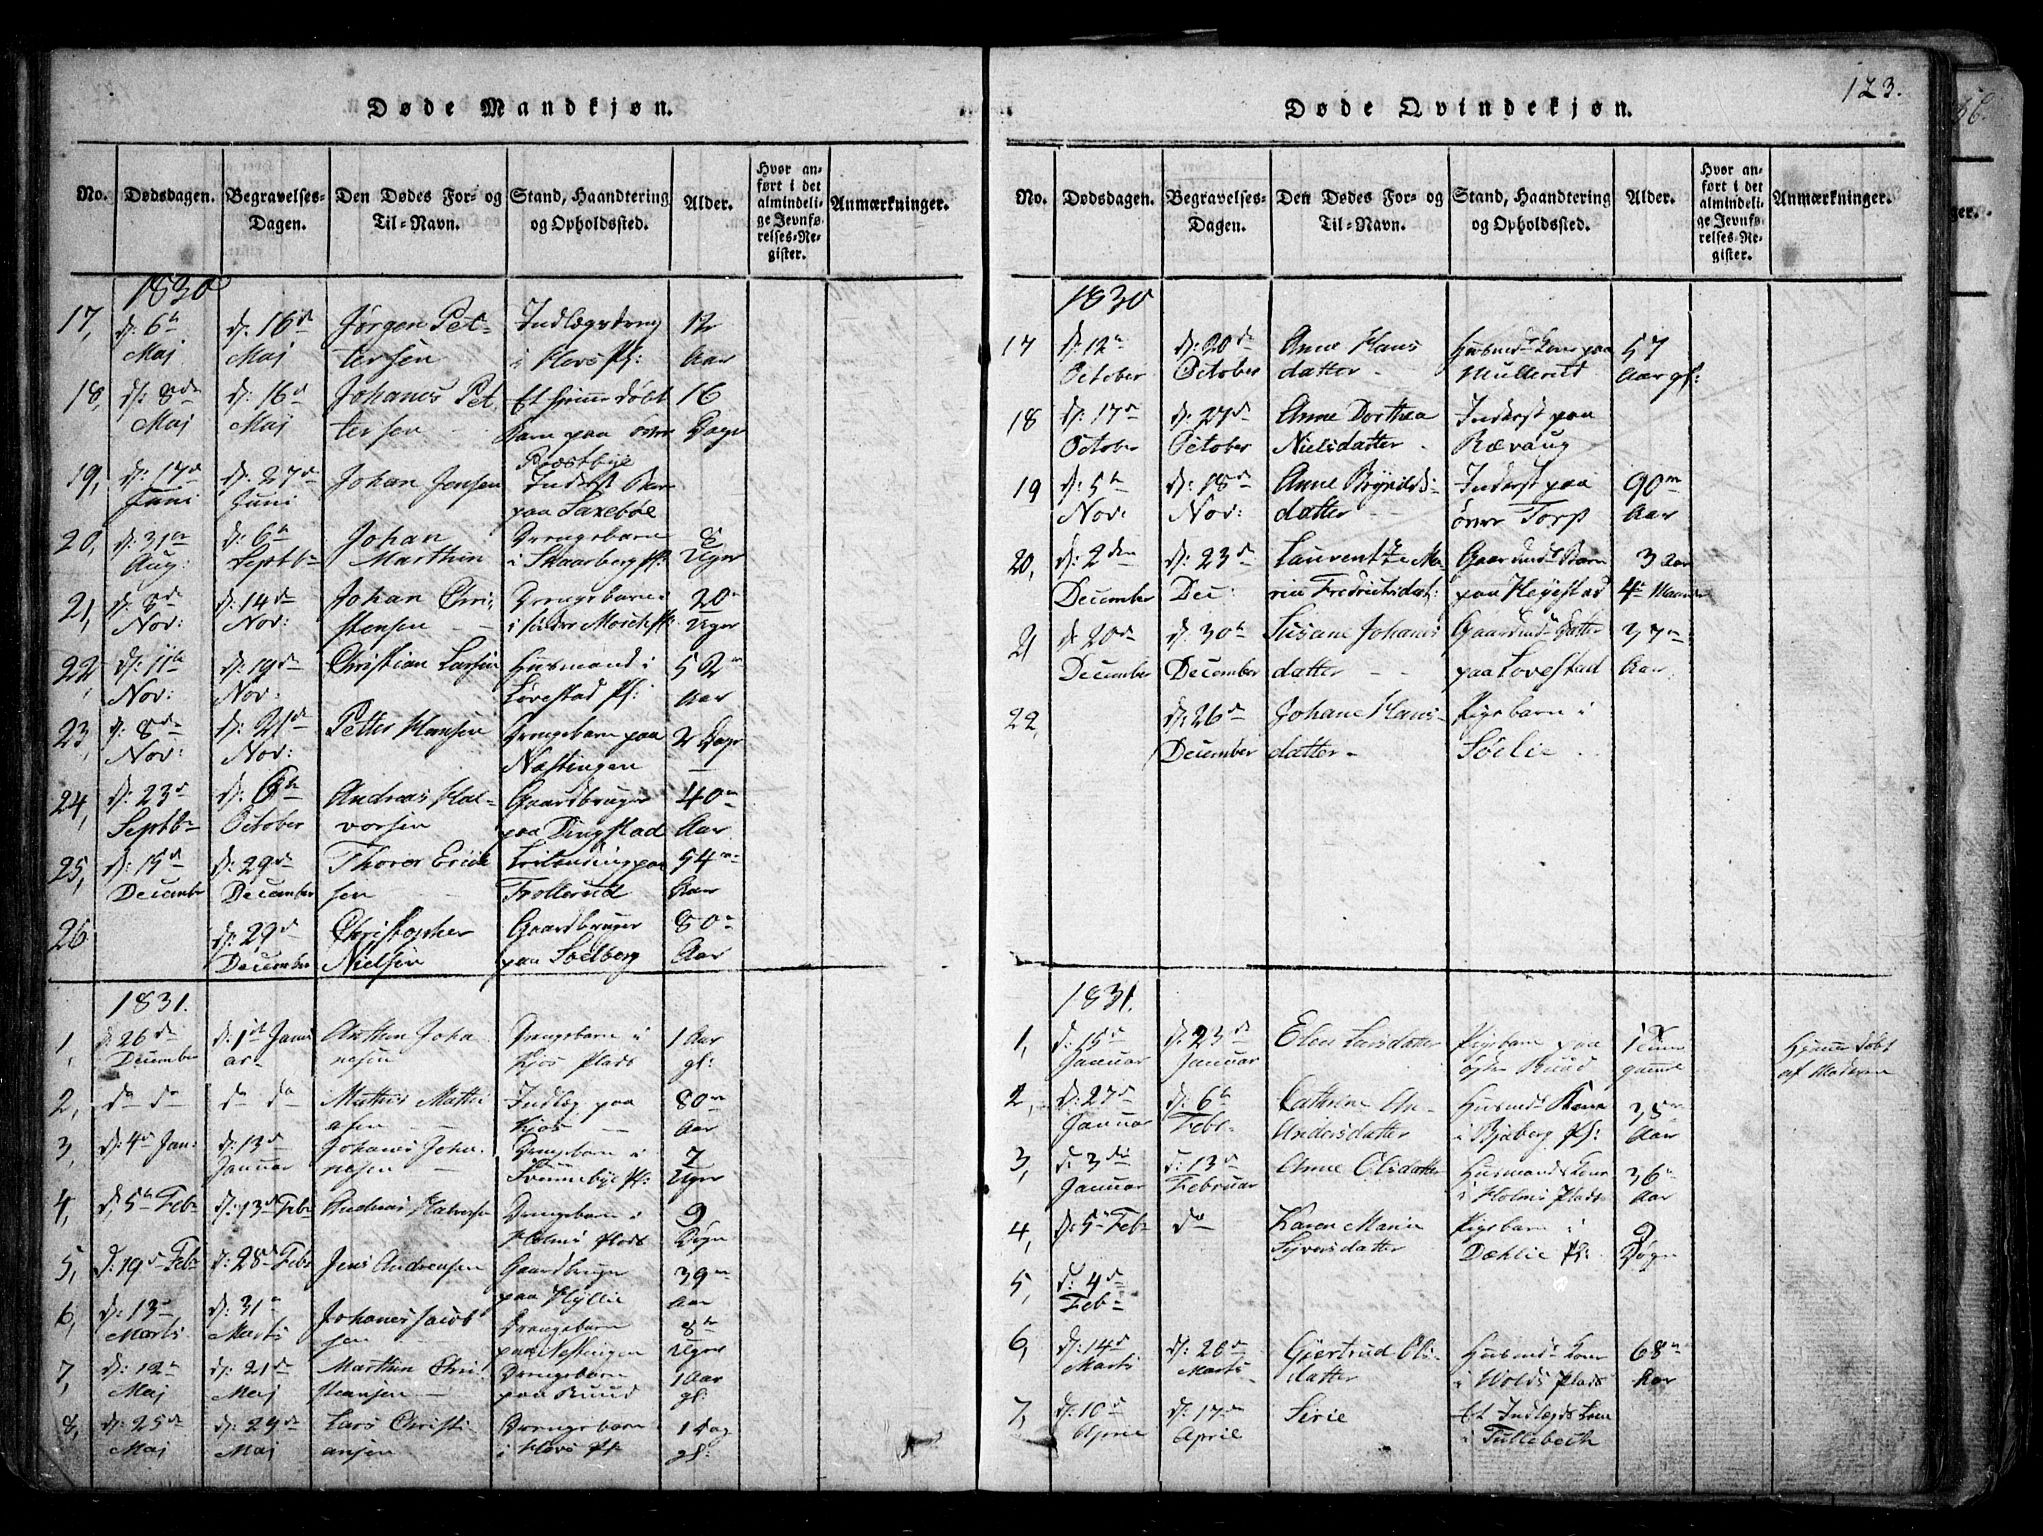 123.
Døde Mandkjøn.
No. Dødsdagen. Begravelses-Dagen. Den Dødes For- og Til-Navn. Stand, Haandtering og Opholdssted. Alder. Hvor anført i det almindelige Jevnførelses-Register. Anmærkninger.
1830
17, d: 6te Maj d: 16de Maj Jørgen Pettersen i Hers Pl: 12 Aar
18, d: 8de Maj d: 16de Maj Johanes Pettersen Et hjemmedøbt Barn paa 16 Dage
19, d: 17de Juni d: 27de Juni Johan Jensen Inderst Barn paa Saxebøe
20, d: 31te Aug: d: 6te Septbr Johan Marthin Drengebarn i Skaarberg Pl: 8 Uger
21, d: 8de Nov: d: 14de Nov: Johan Christensen Drengebarn i 20 Uger
22, d: 11te Nov: d: 19de Nov: Christian Larsen Husmand i Løvestad Pl: 52 Aar
23, d: 8de Nov: d: 21de Nov: Petter Hansen Drengebarn paa Næstingen 2 Dage
24, d: 23de Septbr d: 6te October Andreas Halvorsen Gaardbruger paa Dingstad 40 Aar
25, d: 15de December d: 29de December Thorer Ericksen paa Trollerud 54 Aar
26 d: 29de December Christopher Nielsen Gaardbruger paa Solberg 80 Aar
1831.
1, d: 26de December d: 1ste Januar Anthon Johanesen Drengebarn i Kjos Plads 1 Aar gl:
2, do do do do Mathis Mathiasen Indlæg paa Kjos 80 Aar
3, d: 4de Jan: d: 13de Januar Johanes Johanesen Drengebarn i Svennebye Pl: 7 Uger
4, d: 5te Febr d: 13de Febr Andreas Halvorsen Drengebarn i Holms Plads 9 Døgn
5, d: 19de Febr d: 28de Febr Jens Andreasen Gaardbruger paa Hyllie 39 Aar
6, d: 13de Marts d: 31te Marts Johanes Jacobsen Drengebarn paa Næstingen 8te Uger
7, d: 12te Maj d: 21de Maj Marthin Christiansen Drengebarn paa Ruud 1 Aar gl:
8, d: 25de Maj d: 29de Maj Lars Christiansen Drengebarn i Hers Pl: 1 Dag gl:
Døde Qvindekjøn.
No. Dødsdagen. Begravelses-Dagen. Den Dødes For- og Til-Navn. Stand, Haandtering og Opholdssted. Alder. Hvor anført i det almindelige Jevnførelses-Register. Anmærkninger.
1830
17 d: 12te October d: 20de October Anne Hansdatter Husmds Kone paa Mullerud 57 Aar gl:
18 d: 17de October d: 27de October Anne Dorthea Nielsdatter Inderst paa Rævaug
19 d: 5te Nov: d: 18de Nov: Anne Brynildsdatter Inderst paa øvre Torp 90 Aar
20, d: 2den December d: 23de Dec: Laurentze Marie Fredriksdat: Gaardmds Barn paa Høyestad 3 Aar 4 Maaneder
21 d: 20de December d: 30te December Susane Johanesdatter Gaardmds Datter paa Lovestad 37 Aar.
22, d: 26de December Johane Hansdatter Pigebarn i Søelie
1831.
1, d: 15de Januar d: 23de Januar Elen Larsdatter Pigebarn paa Ruud 1 Time gammel Hjemmedøbt af Moderen
2, d: 27de Januar d: 6te Febr Cathrine An- Andersdatter Husmds Kone i Bjuberg Pl: 35 Aar
3, d: 3die Januar d: 13de Februar Anne Olsdatter Husmands Kone i Holms Plads 36 Aar
4, d: 5te Febr do Karen Marie Syversdatter Pigebarn i Dæhlie Pl: 9 Døgn
5, d: 4de Febr
6, d: 14de Marts d: 26de Marts Gjertrud Olsdatter Husmds Kone i Wolds Plads 68 Aar
7, d: 10de April d: 17de April Sirie Et Indlægds Lem i Tullebeck